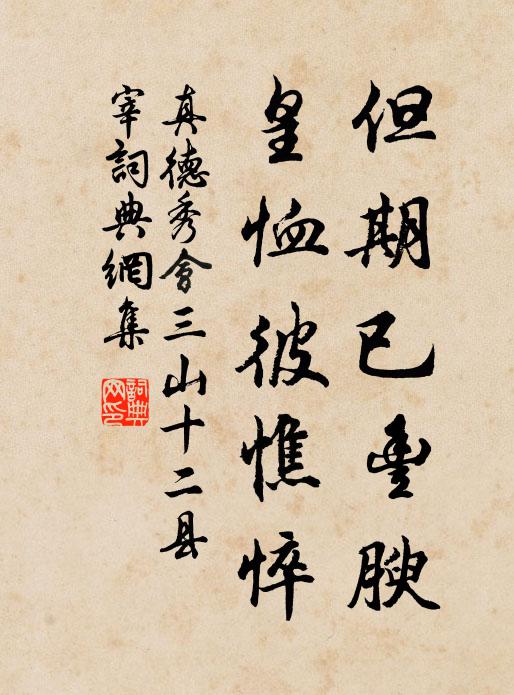 但期己豐腴
皇恤彼憔悴
真德秀會三山十二县
宰詞典網集
詞典网印